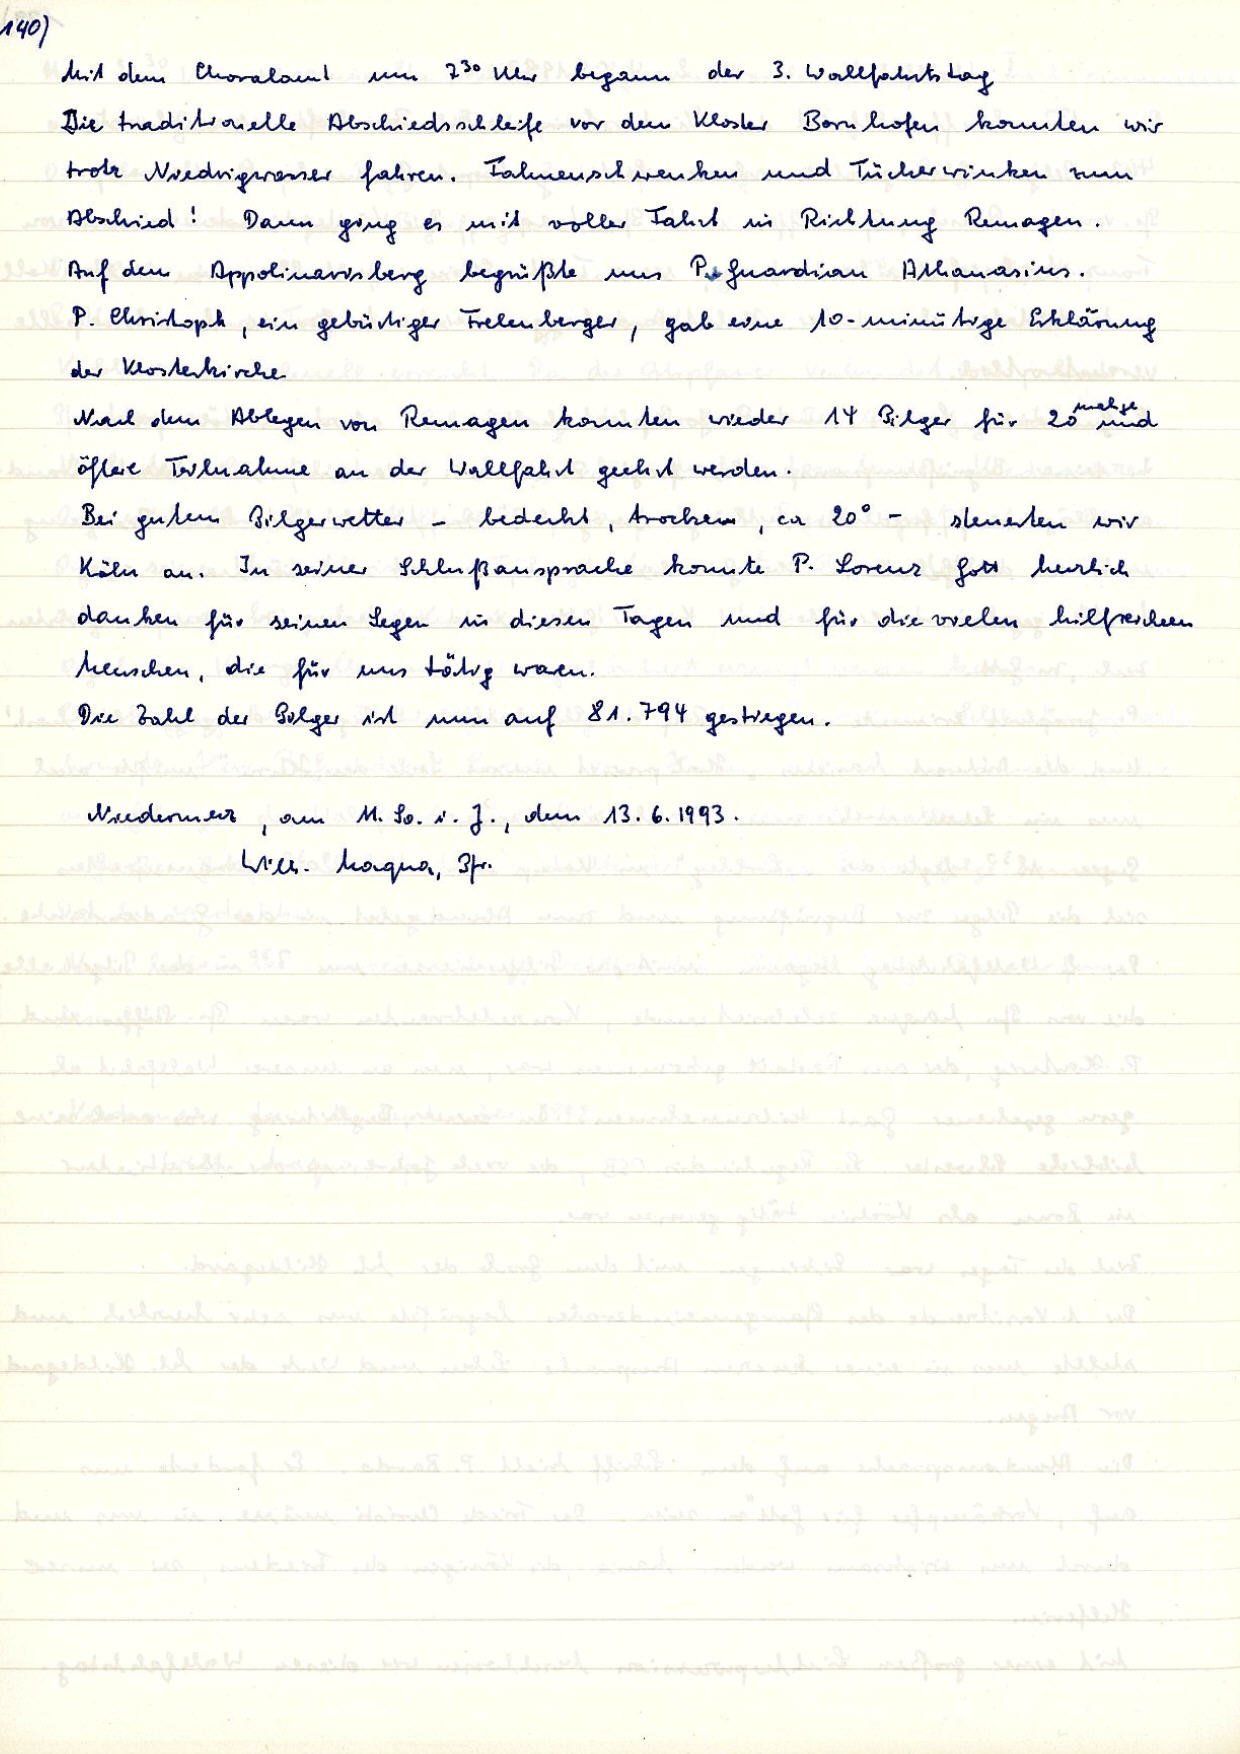 140)
Mit dem Choralamt um 7³⁰ Uhr begann der 3. Wallfahrtstag
Die traditionelle Abschiedsschleife vor dem Kloster Bornhofen konnten wir
trotz Niedrigwasser fahren. Fahnenschwenken und Tücherwinken zum
Abschied! Dann ging es mit voller Fahrt in Richtung Remagen.
Auf dem Appolinarisberg begrüßte uns P. Guardian Athanasius.
P. Christoph, ein gebürtiger Frelenberger, gab eine 10-minütige Erklärung
der Klosterkirche
Nach dem Ablegen von Remagen konnten wieder 14 Pilger für 20 malige und
öftere Teilnahme an der Wallfahrt geehrt werden.
Bei gutem Pilgerwetter - bedeckt, trocken, ca 20° - steuerten wir
Köln an. In seiner Schlußansprache konnte P. Lorenz Gott herzlich
danken für seinen Segen in diesen Tagen und für die vielen hilfreichen
Menschen, die für uns tätig waren.
Die Zahl der Pilger ist nun auf 81.794 gestiegen.
Niedermerz, am 11. So. i. J., dem 13.6.1993.
Wilh. Maqua, Pfr.